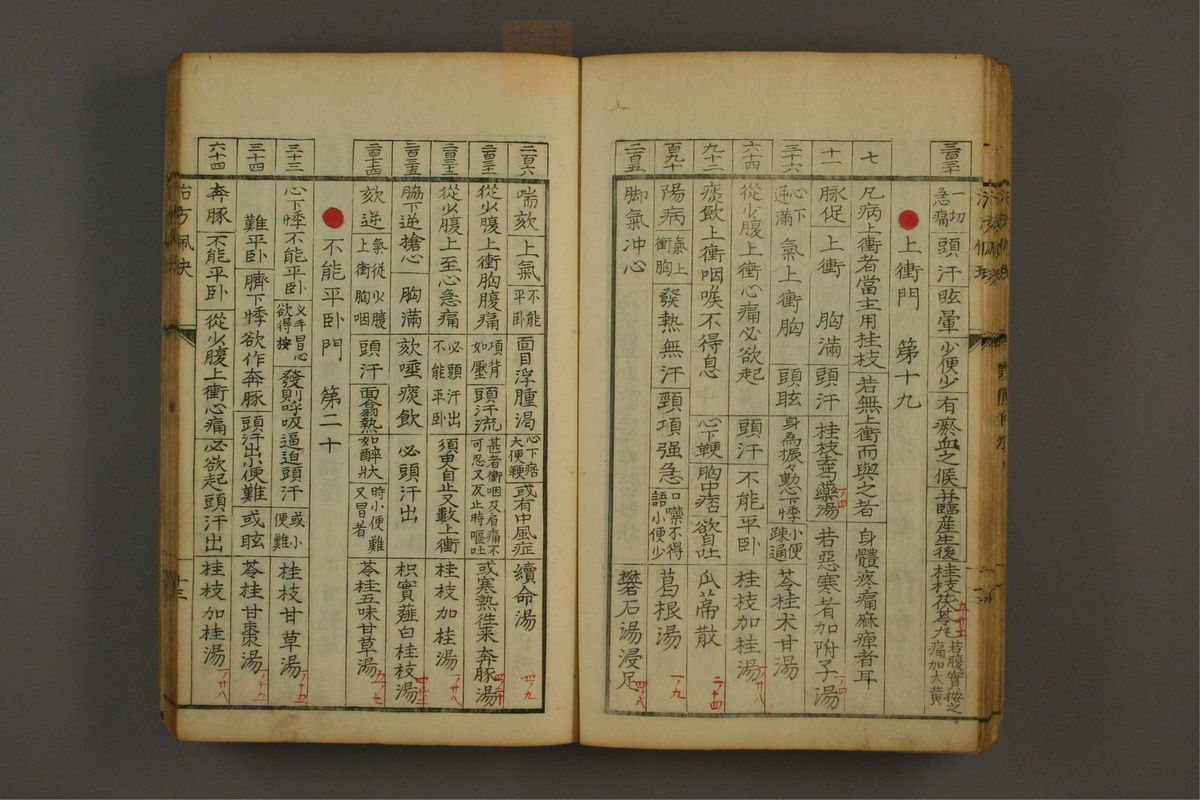 三百三十 一切急痛 頭汗眩暈 少便少 有瘀血之候 并臨産生後 桂枝茯苓丸 若腹實按之痛加大黄
上衝門 第十九
七 凡病上衝者當主用桂枝 若無上衝而與之者 身體疼痛麻痺者耳
十一 脉促 上衝 胸滿 頭汗 桂枝去芍藥湯 若惡寒者加附子湯
三十六 心下逆滿 氣上衝胸 頭眩 身為振々動心下悸 小便疎通 苓桂朮甘湯
六十四 從少腹上衝心痛必欲起 頭汗 不能平卧 桂枝加桂湯
九十二 痰飲上衝咽喉不得息 心下鞕 胸中痞 欲自吐 瓜蔕散
百九十 陽病 氣上衝胸 發熱無汗 頸項强急 口噤不得語小便少 葛根湯
二百五 脚氣冲心 礬石湯浸足
二百六 喘欬 上氣 不能平卧 面目浮腫渴 心下痞大便鞕 或有中風症 續命湯
從少腹上衝胸腹痛 項背如壓 頭汗流 甚者衝咽及肩痛不可忍又及止時嘔吐 或寒熱徃来 奔豚湯
從少腹上至心急痛 必頭汗出不能平卧 須臾自止又數上衝 桂枝加桂湯
脇下逆搶心 胸滿 欬唾痰飲 必頭汗出 枳實薤白桂枝湯
欬逆 氣從少腹上衝胸咽 頭汗 面翕熱如醉狀 時小便難又冒者 苓桂五味甘草湯
不能平卧門 第二十
三十三 心下悸不能平卧 叉手冒心欲得按 發則呼吸逼迫頭汗 或小便難 桂枝甘草湯
三十四 難平卧 臍下悸欲作奔豚 頭汗出小便難 或眩 苓桂甘棗湯
六十四 奔豚 不能平卧 從少腹上衝心痛 必欲起頭汗出 桂枝加桂湯
十三